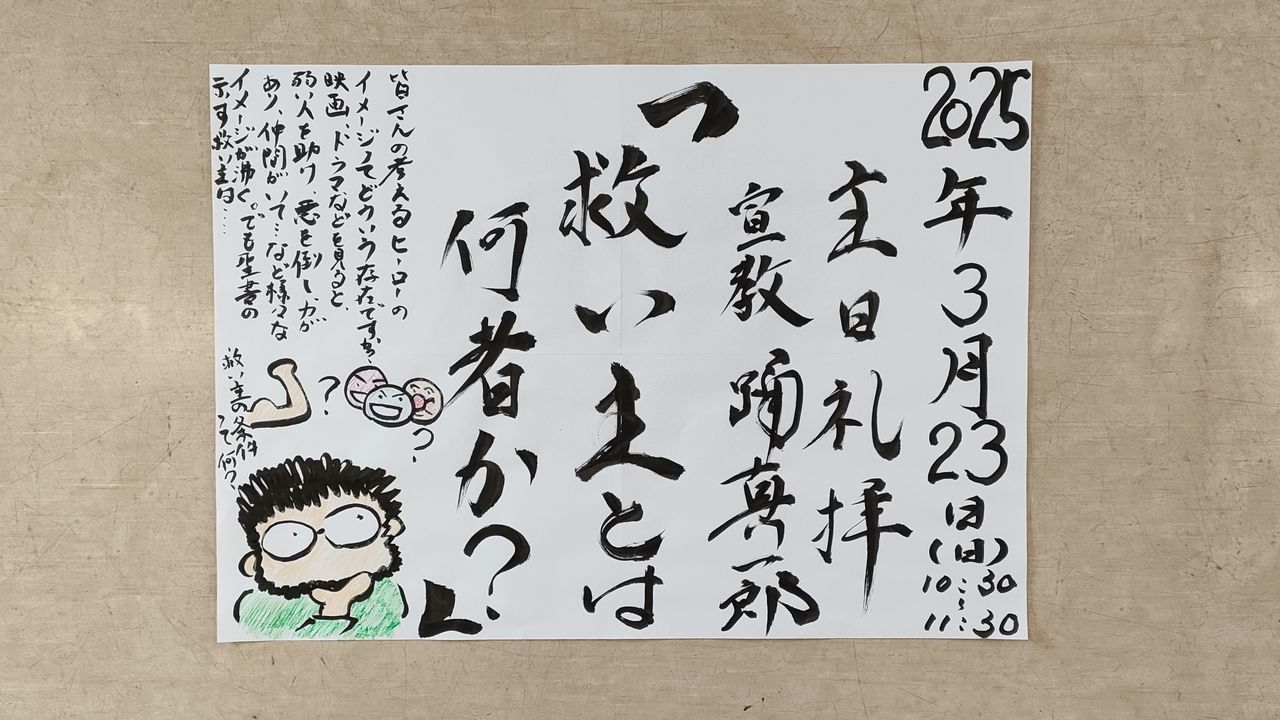 2025年3月23日(日)10:30〜11:30
主日礼拝
宣教 踊真一郎
「救い主とは
何者か?」
皆さんの考えるヒーローの
イメージってどういう存在ですか、
映画、ドラマなどを見ると、
弱い人を助け、悪を倒し、力が
あり、仲間がいて…など様々な
イメージが沸く。でも聖書の
示す救い主は……
救い主の条件
って何?
?
?